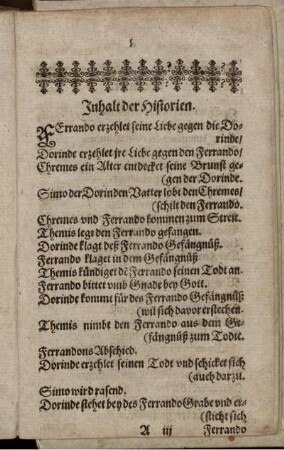 5
Inhalt der Historien.
FErrando erzehlet seine Liebe gegen die Do-
rinde/
Dorinde erzehlet jre Liebe gegen den Ferrando/
Chremes ein Alter entdecket seine Brunst ge-
(gen der Dorinde.
Simo der Dorinden Vatter lobt den Chremes/
(schilt den Ferrando.
Chremes vnd Ferrando kommen zum Streit.
Themis legt den Ferrando gefangen.
Dorinde klagt deß Ferrando Gefängnüß.
Ferrando klaget in dem Gefängnüß
Themis kündiget dẽ Ferrando seinen Todt an.
Ferrando bittet vmb Gnade bey Gott.
Dorinde kommt für des Ferrando Gefängnüß
(wil sich davor erstechen.
Themis nimbt den Ferrando aus dem Ge-
(fängnüß zum Todte.
Ferrandons Abschied.
Dorinde erzehlet seinen Todt vnd schicket sich
(auch darzu.
Simo wird rasend.
Dorinde stehet bey des Ferrando Grabe vnd er-
(sticht sich
A iij Ferrando